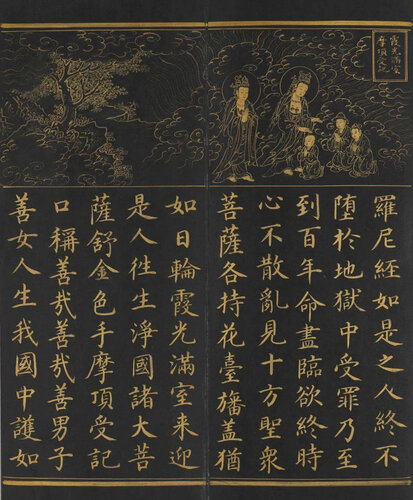 霞光滿室
摩頂受記
羅尼經如是之人終不
堕於地獄中受罪乃至
到百年命盡臨欲終時
心不散亂見十方聖衆
菩薩各持花臺旛盖猶
如日輪霞光滿室来迎
是人徃生淨國諸大菩
薩舒金色手摩頂受記
口稱善㦲善㦲善男子
善女人生我國中護如